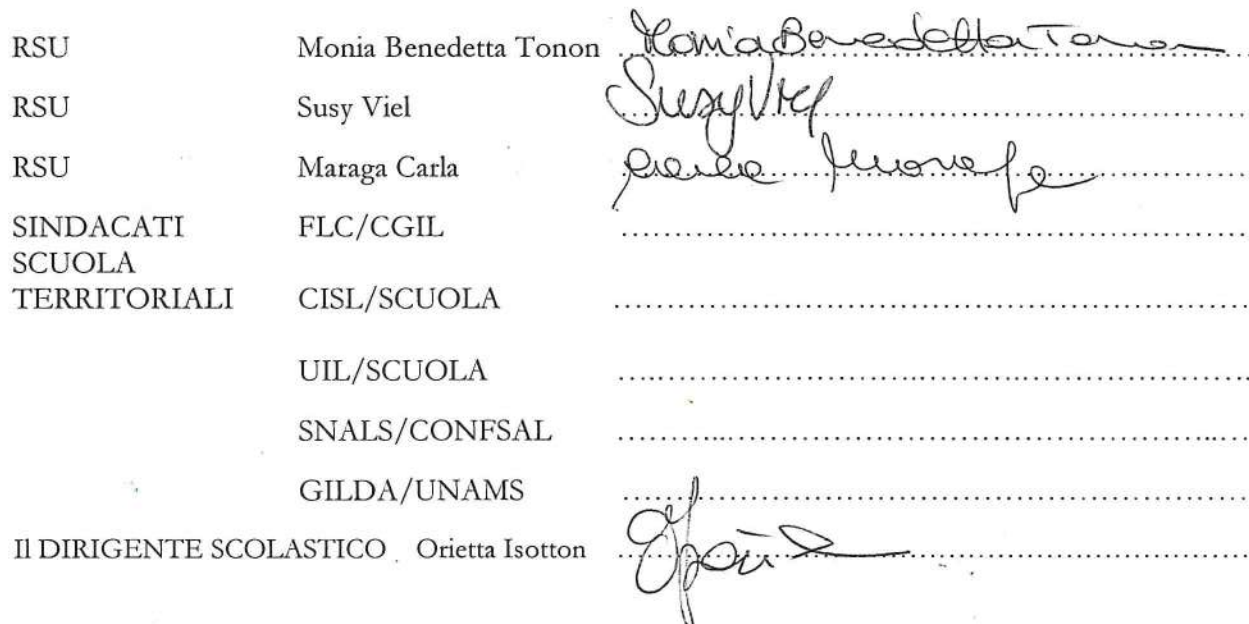 RSU Monia Benedetta Tonon Monia Benedetta Tonon
RSU Susy Viel Susy Viel
RSU Maraga Carla Carla Maraga
SINDACATI FLC/CGIL
SCUOLA
TERRITORIALI CISL/SCUOLA
UIL/SCUOLA
SNALS/CONFSAL
GILDA/UNAMS
Il DIRIGENTE SCOLASTICO Orietta Isotton